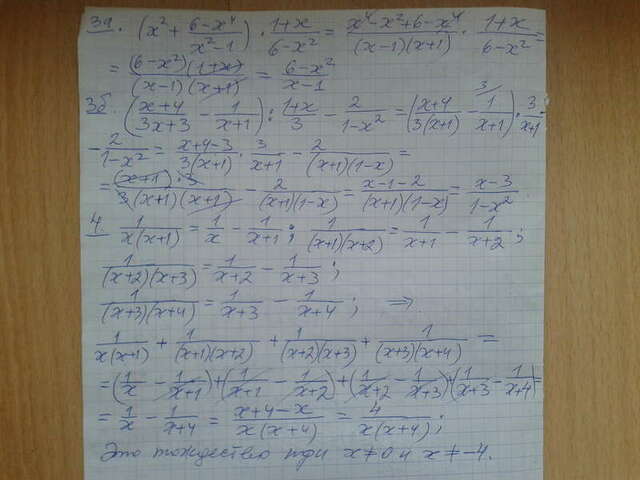 3а. (x² + (6-x⁴)/(x²-1)) · (1+x)/(6-x²) = (x⁴-x²+6-x⁴)/((x-1)(x+1)) · (1+x)/(6-x²) =
= ((6-x²)(1+x))/((x-1)(x+1)) = (6-x²)/(x-1)
3б. ((x+4)/(3x+3) - 1/(x+1)) : (1+x)/3 - 2/(1-x²) = ((x+4)/(3(x+1)) - ³1/(x+1)) · 3/(x+1)
- 2/(1-x²) = (x+4-3)/(3(x+1)) · 3/(x+1) - 2/((x+1)(1-x)) =
= ((x+1)·3)/(3(x+1)(x+1)) - 2/((x+1)(1-x)) = (x-1-2)/((x+1)(1-x)) = (x-3)/(1-x²)
4. 1/(x(x+1)) = 1/x - 1/(x+1); 1/((x+1)(x+2)) = 1/(x+1) - 1/(x+2);
1/((x+2)(x+3)) = 1/(x+2) - 1/(x+3);
1/((x+3)(x+4)) = 1/(x+3) - 1/(x+4); ⇒
1/(x(x+1)) + 1/((x+1)(x+2)) + 1/((x+2)(x+3)) + 1/((x+3)(x+4)) =
= (1/x - 1/(x+1)) + (1/(x+1) - 1/(x+2)) + (1/(x+2) - 1/(x+3)) + (1/(x+3) - 1/(x+4)) =
= 1/x - 1/(x+4) = (x+4-x)/(x(x+4)) = 4/(x(x+4));
Это тождество при x≠0 и x≠-4.